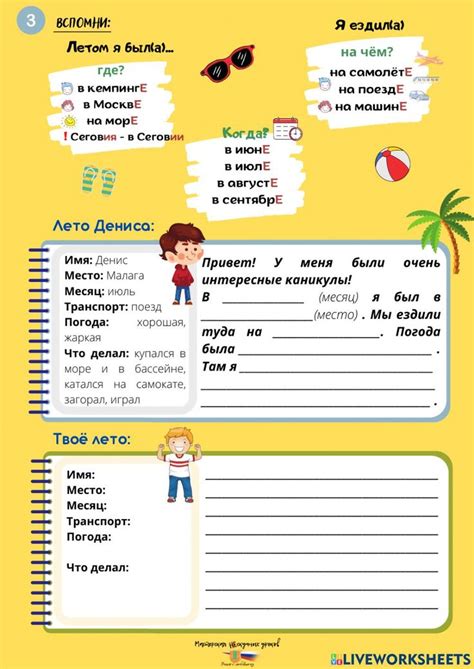 3
ВСПОМНИ:
Летом я был(а)...
где?
в кемпингЕ
в МосквЕ
на морЕ
! Сеговия - в Сеговии
Я ездил(а)
на чём?
на самолётЕ
на поездЕ
на машинЕ
Когда?
в июнЕ
в июлЕ
в августЕ
в сентябрЕ
Лето Дениса:
Имя: Денис
Место: Малага
Месяц: июль
Транспорт: поезд
Погода: хорошая,
жаркая
Что делал: купался в
море и в бассейне,
катался на самокате,
загорал, играл
Привет! У меня были очень
интересные каникулы!
В ____________ (месяц) я был в
________________(место) . Мы ездили
туда на ____________. Погода
была ____________________________ .
Там я ____________________________
____________________________________
____________________________________ .
Твоё лето:
Имя:
Место:
Месяц:
Транспорт:
Погода:
Что делал:
LIVEWORKSHEETS